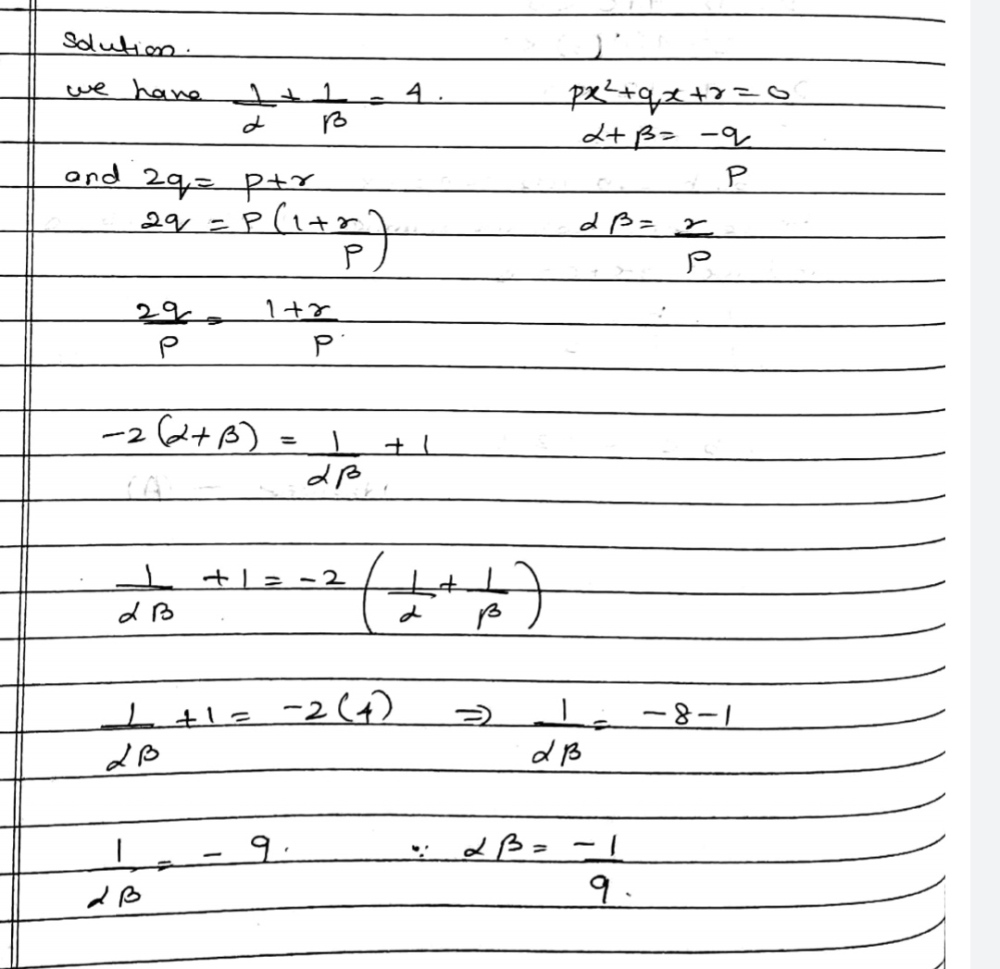 Solution.
we have 1/α + 1/β = 4.
px²+qx+r=0
α+β= -q/p
and 2q= p+r
2q = P(1+r/p)
αβ= r/p
2q/p = 1+r/p.
-2(α+β) = 1/αβ + 1
1/αβ +1 = -2(1/α + 1/β)
1/αβ +1 = -2(4) ⇒ 1/αβ = -8-1
1/αβ = - 9. ∵ αβ = -1/9.